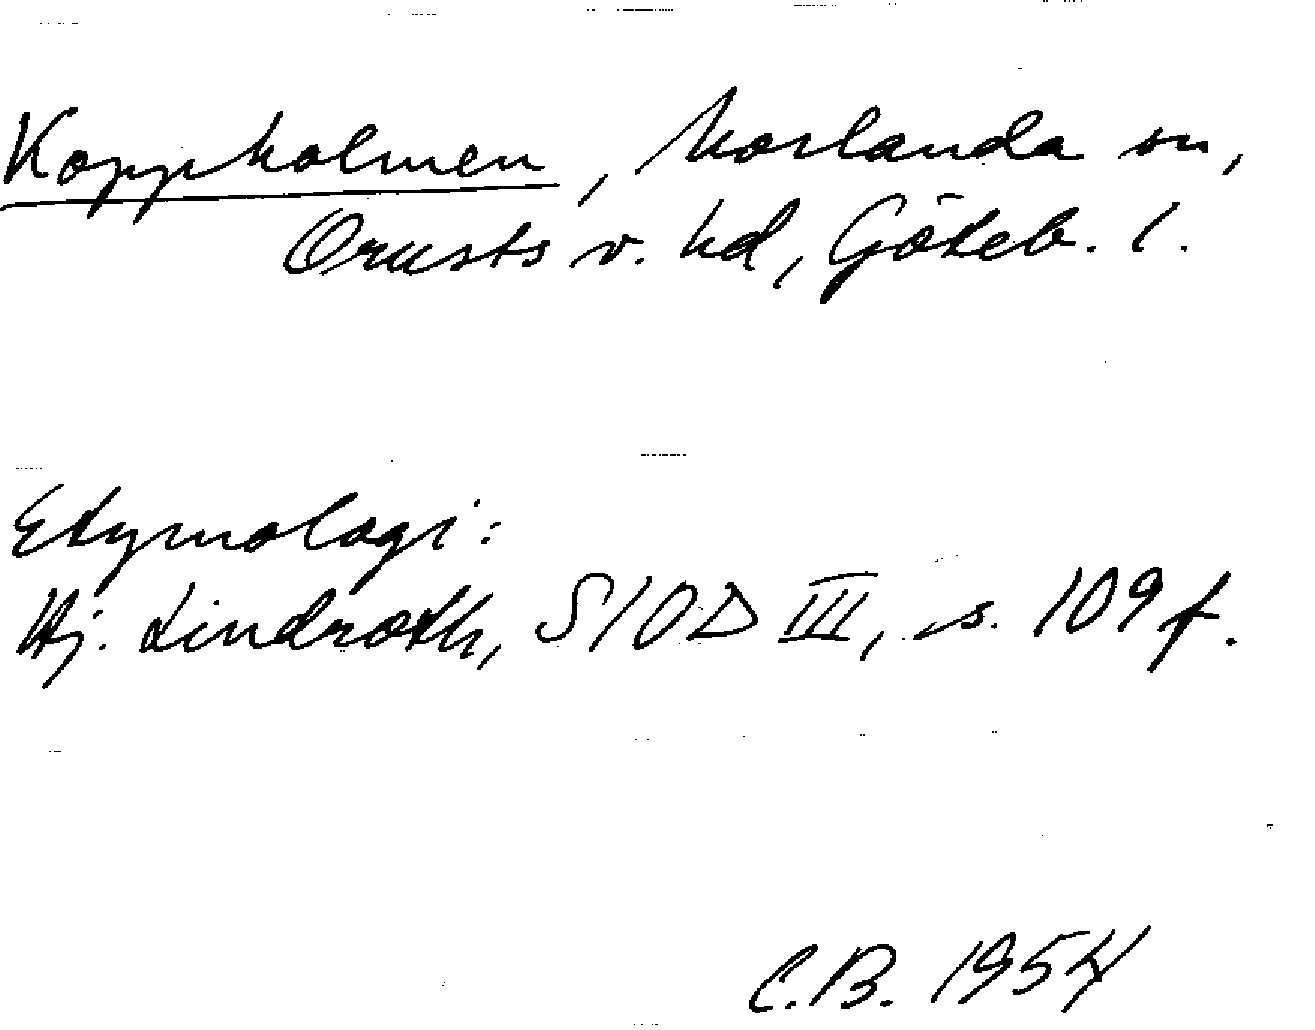 Koppholmen, Morlanda sn,
Orusts v. hd, Göteb. l.
Etymologi:
Hj. Lindroth, SIOD III, s. 109 f.
C.B. 1954